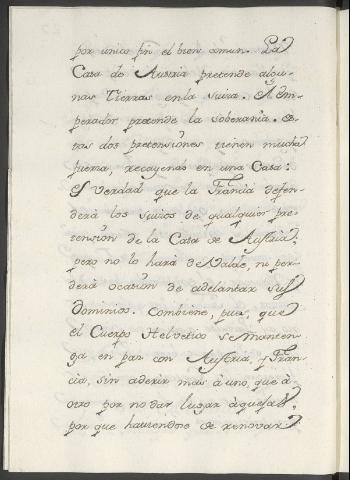 por unico fin el bien comun. La
Casa de Austria pretende algu-
nas Tierras en la suiza. El Em-
perador pretende la soberania. Es-
tas dos pretensiones tienen mucha
fuerza, recayendo en una Casa:
es verdad que la Francia defen-
derà los suizos de qualquier pre-
tension de la Casa de Austria,
pero no lo harà de Valde, ni per-
derà ocasion de adelantar sus
Dominios. Combiene, pues, que
el Cuerpo Helvetico se manten-
ga en paz con Austria, y Fran-
cia, sin aderir mas à uno, que à
otro por no dar lugar à quejas,
por que haviendose de renovar